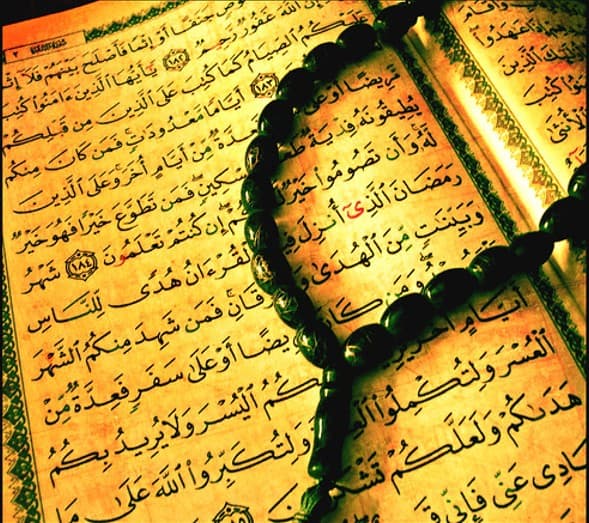 جَنَفًا أَوْ إِثْمًا فَأَصْلَحَ بَيْنَهُمْ فَلَآ إِثْمَ
إِنَّ ٱللَّهَ غَفُورٌ رَّحِيمٌ ١٨٢ يَٰٓأَيُّهَا ٱلَّذِينَ ءَامَنُوا۟ كُتِبَ
عَلَيْكُمُ ٱلصِّيَامُ كَمَا كُتِبَ عَلَى ٱلَّذِينَ مِن قَبْلِكُمْ
١٨٣ أَيَّامًا مَّعْدُودَٰتٍ فَمَن كَانَ مِنكُم
مَّرِيضًا أَوْ عَلَىٰ فَعِدَّةٌ مِّنْ أَيَّامٍ أُخَرَ وَعَلَى ٱلَّذِينَ
يُطِيقُونَهُۥ فِدْيَةٌ طَعَامُ مِسْكِينٍ فَمَن تَطَوَّعَ خَيْرًا فَهُوَ خَيْرٌ
لَّهُۥ وَأَن تَصُومُوا۟ خَيْرٌ لَّكُمْ إِن كُنتُمْ تَعْلَمُونَ ١٨٤ شَهْرُ
رَمَضَانَ ٱلَّذِىٓ أُنزِلَ فِيهِ ٱلْقُرْءَانُ هُدًى لِّلنَّاسِ
وَبَيِّنَٰتٍ مِّنَ ٱلْهُدَىٰ وَٱلْفُرْقَانِ فَمَن شَهِدَ مِنكُمُ ٱلشَّهْرَ
وَمَن كَانَ مَرِيضًا أَوْ عَلَىٰ سَفَرٍ فَعِدَّةٌ مِّنْ
أَيَّامٍ أُخَرَ يُرِيدُ بِكُمُ ٱلْيُسْرَ وَلَا يُرِيدُ بِكُمُ
ٱلْعُسْرَ وَلِتُكْمِلُوا۟ ٱلْعِدَّةَ وَلِتُكَبِّرُوا۟ ٱللَّهَ عَلَىٰ مَا
هَدَىٰكُمْ وَلَعَلَّكُمْ تَشْكُرُونَ ١٨٥
عِبَادِى عَنِّى فَإِنِّى قَرِيبٌ